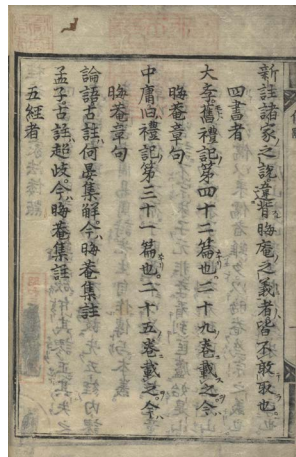 新註諸家之説違晋晦庵之義者皆不敢取也
四書者
大学舊禮記第四十二篇也二十九巻載之今ハ
晦菴章句
中庸旧禮記第三十一篇也二十五巻載之今ハ
晦菴章句
論語古註ハ何晏集解今ハ晦菴集註
孟子古註趙歧今ハ晦菴集註
五經者